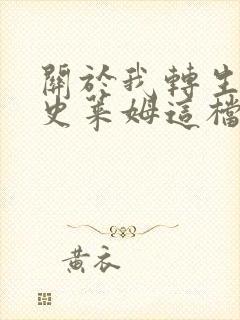 關於我轉生
史萊姆這檔
黃衣